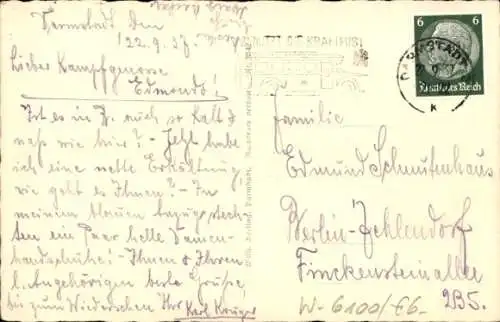 Darmstadt den
22.9.37.
Lieber Kampfgenosse
Edmonds!
Ist es in Z. auch so kalt &
naß wie hier? - Jetzt habe
ich eine nette Erkältung,
wie geht es Ihnen? - In
meinem blauen Anzug steck-
ten ein Paar helle Damen-
handschuhe! - Ihnen & Ihren
l. Angehörigen beste Grüße,
bis zum Wiedersehen Ihr Karl Krüger
NUTZT DIE KRAFTPOST
DARMSTADT
K
6 6
Deutsches Reich
Familie
Edmund Schnutenhaus
Berlin-Zehlendorf
Finckensteinallee
235.
W-6100/E6-